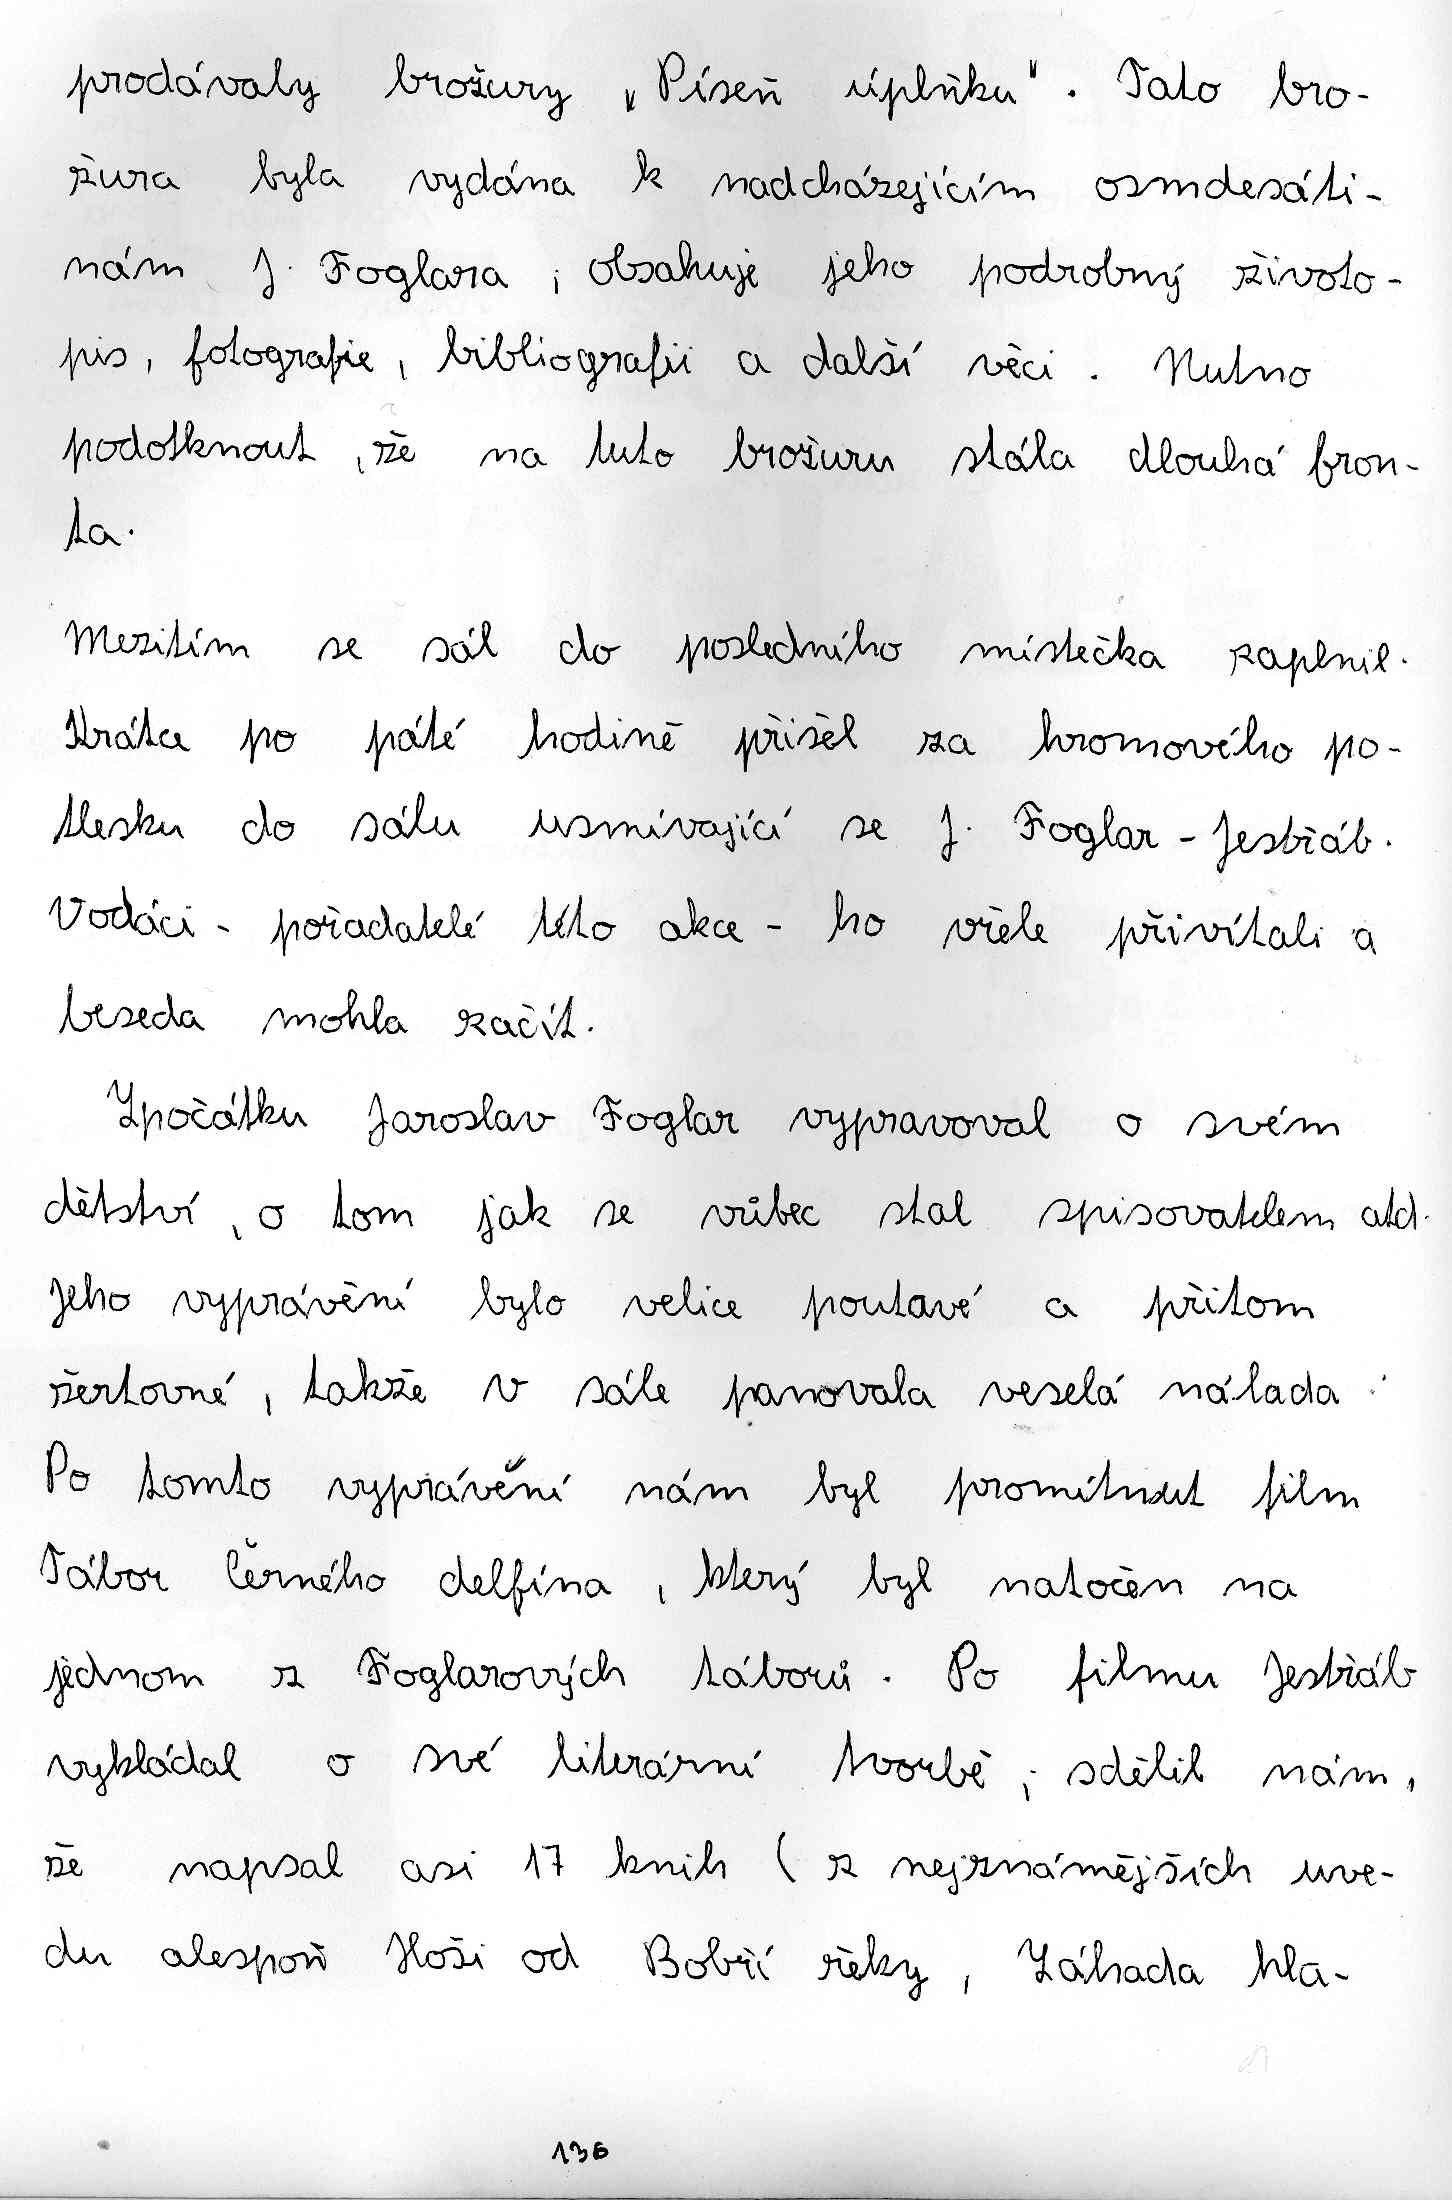 prodávaly brožury „Píseň úplňku". Tato bro-
žura byla vydána k nadcházejícím osmdesáti-
nám J. Foglara, obsahuje jeho podrobný životo-
pis, fotografie, bibliografii a další věci. Nutno
podotknout, že na tuto brožuru stála dlouhá fron-
ta.
Mezitím se sál do posledního místečka zaplnil.
Krátce po páté hodině přišel za hromového po-
tlesku do sálu usmívající se J. Foglar - Jestřáb.
Vodáci - pořadatelé této akce - ho vřele přivítali a
beseda mohla začít.
Zpočátku Jaroslav Foglar vypravoval o svém
dětství, o tom jak se vůbec stal spisovatelem atd.
Jeho vyprávění bylo velice poutavé a přitom
žertovné, takže v sále panovala veselá nálada.
Po tomto vyprávění nám byl promítnut film
Tábor Černého delfína, který byl natočen na
jednom z Foglarových táborů. Po filmu Jestřáb
vykládal o své literární tvorbě; sdělil nám,
že napsal asi 17 knih (z nejznámějších uve-
du alespoň Hoši od Bobří řeky, Záhada hla-
136